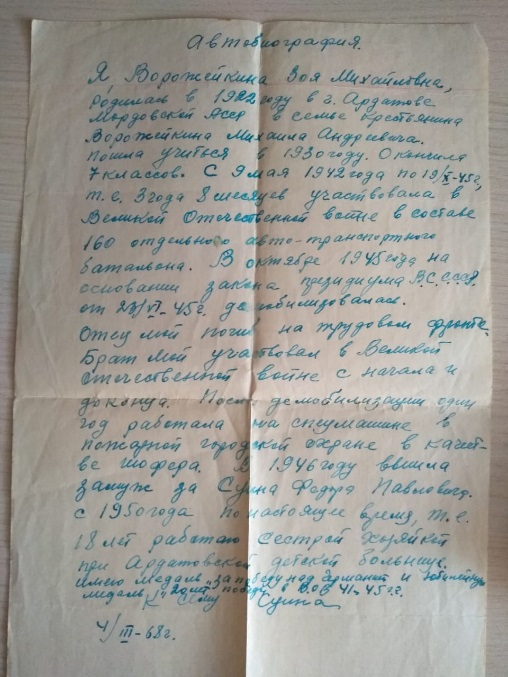 Автобиография.
Я Ворожейкина Зоя Михайловна,
родилась в 1922 году в г. Ардатове
Мордовской Асср в семье крестьянина
Ворожейкина Михаила Андреевича.
Пошла учиться в 1930 году. Окончила
7 классов. С 9 мая 1942 года по 19/X-45 г,
т.е. 3 года 8 месяцев участвовала в
Великой Отечественной войне в составе
160 отдельного авто-транспортного
батальона. В октябре 1945 года на
основании закона президиума В.С.СССР
от 23/VI-45 г. демобилизовалась.
Отец мой погиб на трудовом фронте.
Брат мой участвовал в Великой
отечественной войне с начала и
до конца. После демобилизации один
год работала на спецмашине в
пожарной городской охране в качест-
ве шофера. В 1946 году вышла
замуж за Суина Федора Павловича.
с 1950 года по настоящее время, т.е.
18 лет работаю сестрой хозяйкой
при Ардатовской детской больнице.
имею медаль "за победу над Германией и юбилейную
медаль "20 лет победы в ВОВ 41-45 г.г.
К сему Суина
4/III-68 г.